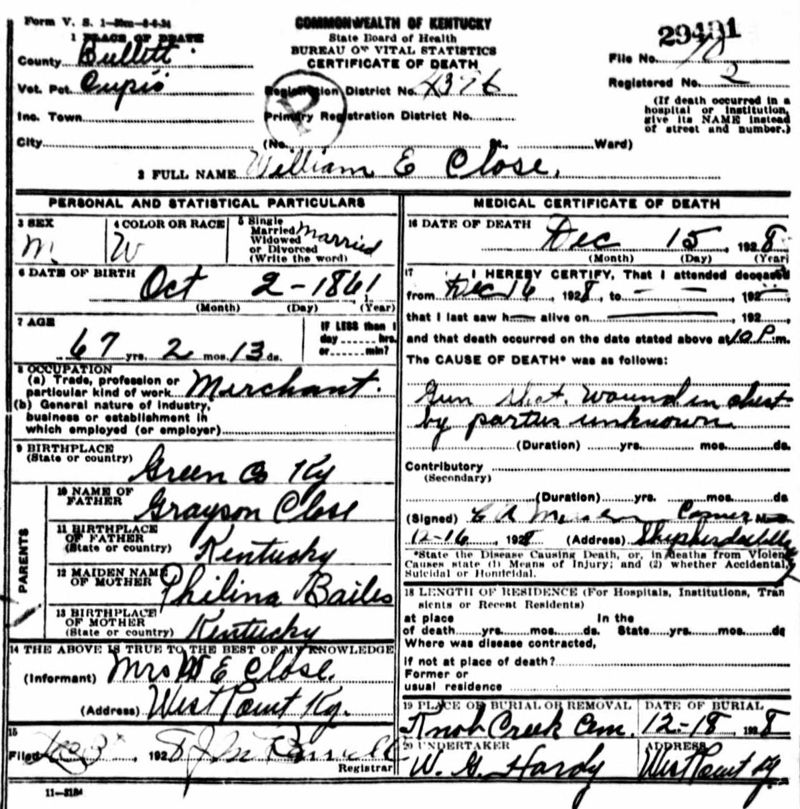 Form V. S. 1
COMMONWEALTH OF KENTUCKY
State Board of Health
BUREAU OF VITAL STATISTICS
CERTIFICATE OF DEATH
29401
1 PLACE OF DEATH
County Bullitt
Vot. Pct. Cupio
Inc. Town
City
Registration District No. 4376
Primary Registration District No.
(No. St. Ward)
File No. 70
Registered No. 2
(If death occurred in a
hospital or institution,
give its NAME instead
of street and number.)
2 FULL NAME William E Close.
PERSONAL AND STATISTICAL PARTICULARS
3 SEX
M.
4 COLOR OR RACE
W
5 Single
Married
Widowed
or Divorced
(Write the word)
Married
6 DATE OF BIRTH
Oct 2 - 1861
(Month) (Day) (Year)
7 AGE
67 yrs. 2 mos. 13 ds.
IF LESS than 1
day hrs.
or min?
8 OCCUPATION
(a) Trade, profession or
particular kind of work Merchant.
(b) General nature of industry,
business or establishment in
which employed (or employer)
9 BIRTHPLACE
(State or country)
Green Co Ky
PARENTS
10 NAME OF
FATHER
Grayson Close
11 BIRTHPLACE
OF FATHER
(State or country)
Kentucky
12 MAIDEN NAME
OF MOTHER
Philina Bailes
13 BIRTHPLACE
OF MOTHER
(State or country)
Kentucky
14 THE ABOVE IS TRUE TO THE BEST OF MY KNOWLEDGE
(Informant) Mrs W E Close.
(Address) West Point Ky.
15
Filed 1928
Registrar
11-3184
MEDICAL CERTIFICATE OF DEATH
16 DATE OF DEATH
Dec 15, 1928
(Month) (Day) (Year)
17 I HEREBY CERTIFY, That I attended deceased
from Dec 16, 1928, to , 192
that I last saw h alive on , 192
and that death occurred on the date stated above at 10 P.m.
The CAUSE OF DEATH* was as follows:
Gun Shot wound in chest
by parties unknown
(Duration) yrs. mos. ds.
Contributory
(Secondary)
(Duration) yrs. mos. ds.
(Signed) C A
12-16 1928 (Address) Shepherdsville
*State the Disease Causing Death, or, in deaths from Violent
Causes state (1) Means of Injury; and (2) whether Accidental,
Suicidal or Homicidal.
18 LENGTH OF RESIDENCE (For Hospitals, Institutions, Tran
sients or Recent Residents)
at place In the
of death yrs. mos. ds. State yrs. mos. ds.
Where was disease contracted,
if not at place of death?
Former or
usual residence
19 PLACE OF BURIAL OR REMOVAL
Knob Creek Cem.
DATE OF BURIAL
12-18, 1928
20 UNDERTAKER
W. G. Hardy
ADDRESS
West Point Ky.